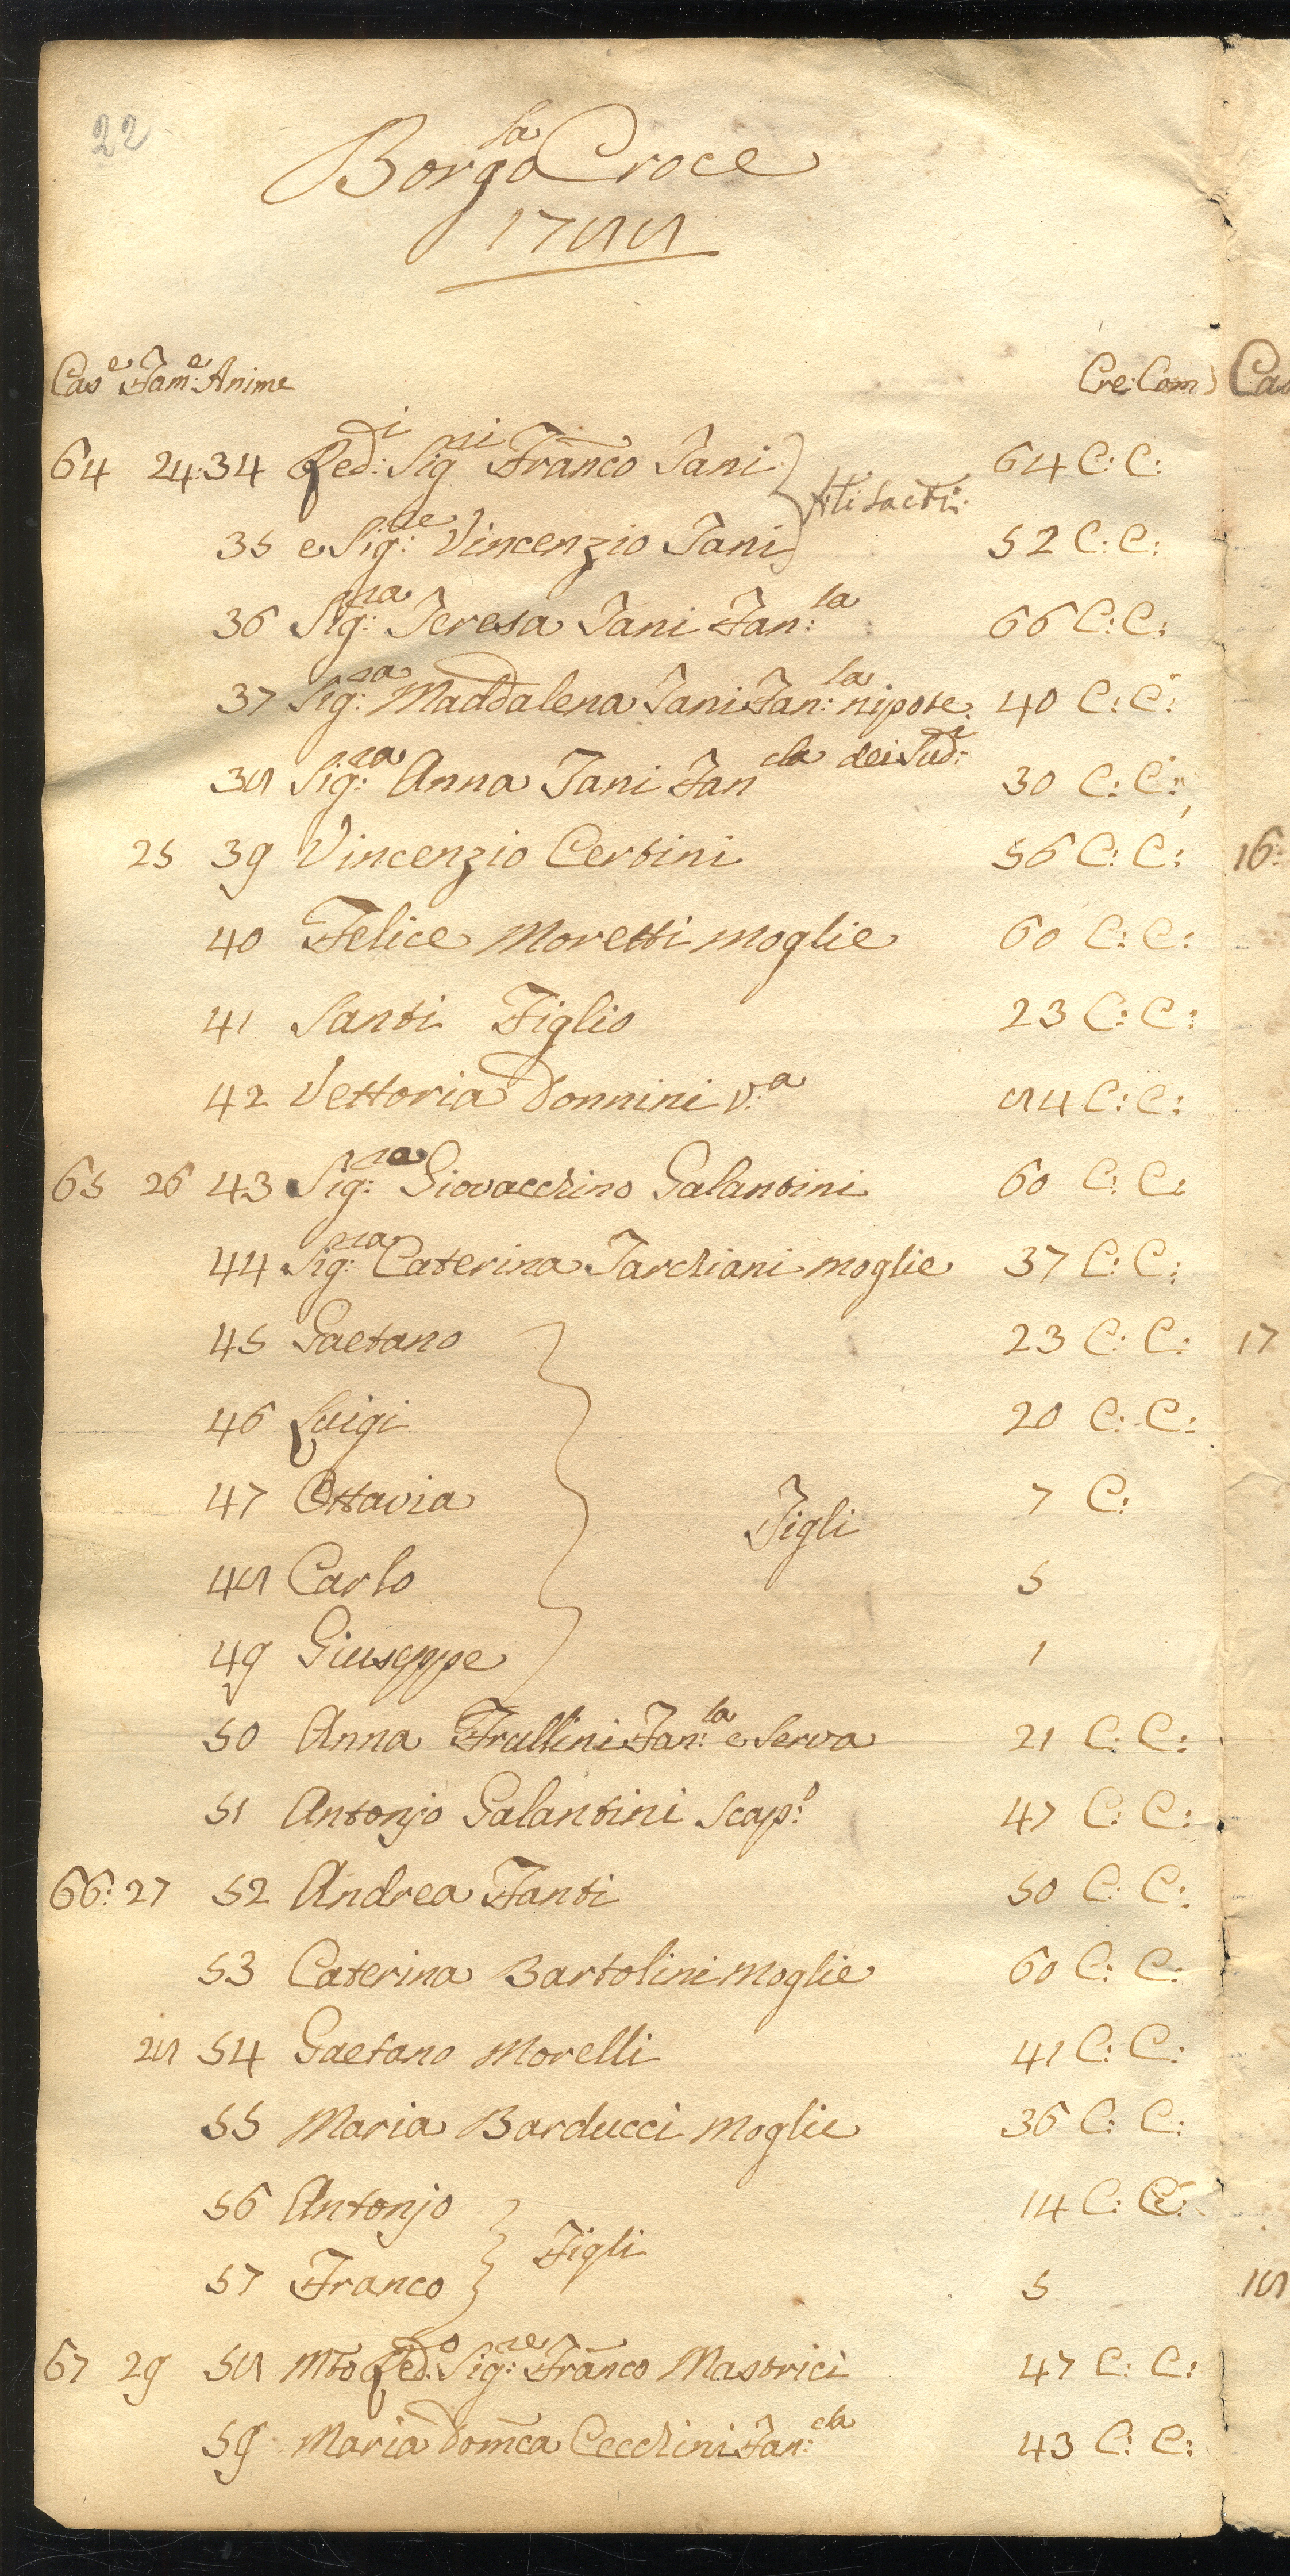 22
Borgo la Croce
1788
Case Fame: Anime Cre: Com
64 24: 34 Redi: Sigri Franco Tani 64 C: C:
35 e Sigre: Vincenzio Tani 52 C: C:
36 Sigra: Teresa Tani Fan:la 66 C: C:
37 Sigra: Maddalena Tani Fan:la nipote: 40 C: C:
38 Sigra: Anna Tani Fancla dei Sudi: 30 C: C:
25 39 Vincenzio Certini 56 C: C:
40 Felice Moretti moglie 60 C: C:
41 Santi Figlio 23 C: C:
42 Vettoria Donnini V:a 84 C: C:
65 26 43 Sigre: Giovacchino Galantini 60 C: C:
44 Sigra: Caterina Tarchiani moglie 37 C: C:
45 Gaetano 23 C: C:
46 Luigi 20 C: C:
47 Ottavia 7 C:
Figli
48 Carlo 5
49 Giuseppe 1
50 Anna Frullini Fan:la e Serva 21 C: C:
51 Antonjo Galantini Scap:o 47 C: C:
66: 27 52 Andrea Fanti 50 C: C:
53 Caterina Bartolini Moglie 60 C: C:
28 54 Gaetano Morelli 41 C: C:
55 Maria Barducci Moglie 36 C: C:
56 Antonjo 14 C: C:
Figli
57 Franco 5
67 29 58 Mto Redo: Sigre: Franco Mastrici 47 C: C:
59 Maria Domca Cecchini Fan:cla 43 C: C:
16:
17
18